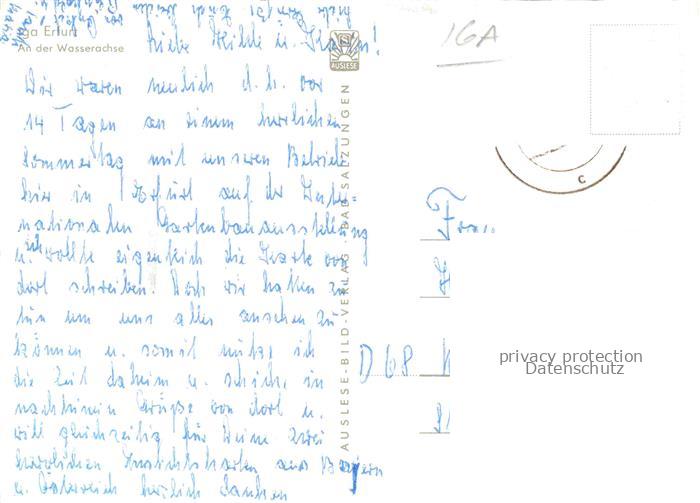 iga Erfurt
An der Wasserachse
16A
AUSLESE
Liebe Hilde u. !
Wir waren neulich d. h. vor
14 Tagen an einem herrlichen
Sommertag mit unseren Betrieb
hier in Erfurt auf der Inter-
nationalen Gartenbauausstellung
u. ich wollte eigentlich die Karte von
dort schreiben. Doch wir hatten zu
tun um uns alles ansehen zu
können u. somit nütz ich
die Zeit daheim u. schick, im
nachhinein Grüße von dort u.
will gleichzeitig für Deine zwei
herrlichen Ansichtskarten aus Bayern
u. Österreich herzlich danken
AUSLESE-BILD-VERLAG · BAD SALZUNGEN
c
Frau
D 68
privacy protection
Datenschutz